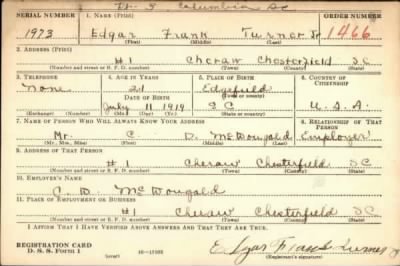 Columbia SC
SERIAL NUMBER 1. NAME (Print) ORDER NUMBER
1973 Edgar Frank Turner Jr 1466
(First) (Middle) (Last)
2. ADDRESS (Print)
#1 Cheraw Chesterfield SC
(Number and street or R. F. D. number) (Town) (County) (State)
3. TELEPHONE 4. AGE IN YEARS 5. PLACE OF BIRTH 6. COUNTRY OF CITIZENSHIP
None 21 Edgefield
DATE OF BIRTH (Town or county)
July 11 1919 SC U.S.A.
(Exchange) (Number) (Mo.) (Day) (Yr.) (State or country)
7. NAME OF PERSON WHO WILL ALWAYS KNOW YOUR ADDRESS 8. RELATIONSHIP OF THAT PERSON
Mr. C D. McDougald Employer
(Mr., Mrs., Miss) (First) (Middle) (Last)
9. ADDRESS OF THAT PERSON
#1 Cheraw Chesterfield SC
(Number and street or R. F. D. number) (Town) (County) (State)
10. EMPLOYER'S NAME
C. D. McDougald
11. PLACE OF EMPLOYMENT OR BUSINESS
#1 Cheraw Chesterfield SC
(Number and street or R. F. D. number) (Town) (County) (State)
I AFFIRM THAT I HAVE VERIFIED ABOVE ANSWERS AND THAT THEY ARE TRUE.
REGISTRATION CARD
D. S. S. Form 1 (over) Edgar Frank Turner Jr
(Registrant's signature)